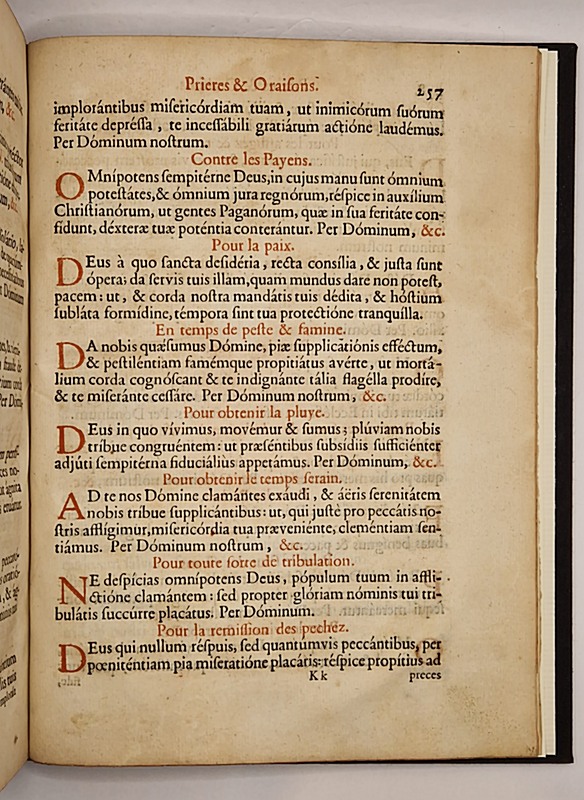 Prieres & Oraisons.
257
implorántibus misericórdiam tuam, ut inimicórum suórum
feritáte depréssa, te incessábili gratiárum actióne laudémus.
Per Dóminum nostrum.
Contre les Payens.
OMnípotens sempitérne Deus, in cujus manu sunt ómnium
potestátes, & ómnium jura regnórum, réspice in auxílium
Christianórum, ut gentes Paganórum, quæ in sua feritáte con-
fidunt, déxteræ tuæ poténtia conterántur. Per Dóminum, &c.
Pour la paix.
DEus à quo sancta desidéria, recta consília, & justa sunt
ópera: da servis tuis illam, quam mundus dare non potest,
pacem: ut, & corda nostra mandátis tuis dédita, & hóstium
subláta formídine, témpora sint tua protectióne tranquílla.
En temps de peste & famine.
DA nobis quæsumus Dómine, piæ supplicatiónis efféctum,
& pestiléntiam famémque propitiátus avérte, ut mortá-
lium corda cognóscant & te indignánte tália flagélla prodíre,
& te miseránte cessáre. Per Dóminum nostrum, &c.
Pour obtenir la pluye.
DEus in quo vívimus, movémur & sumus; plúviam nobis
tríbue congruéntem: ut præséntibus subsídiis sufficiénter
adjúti sempitérna fiduciálius appetámus. Per Dóminum, &c.
Pour obtenir le temps serain.
AD te nos Dómine clamántes exáudi, & áëris serenitátem
nobis tríbue supplicántibus: ut, qui justè pro peccátis no-
stris afflígimur, misericórdia tua præveniénte, cleméntiam sen-
tiámus. Per Dóminum nostrum, &c.
Pour toute sorte de tribulation.
NE despícias omnípotens Deus, pópulum tuum in affli-
ctióne clamántem: sed propter glóriam nóminis tui tri-
bulátis succúrre placátus. Per Dóminum.
Pour la remission des pechez.
DEus qui nullum réspuis, sed quantúmvis peccántibus, per
pœniténtiam pia miseratióne placáris: réspice propítius ad
Kk
preces